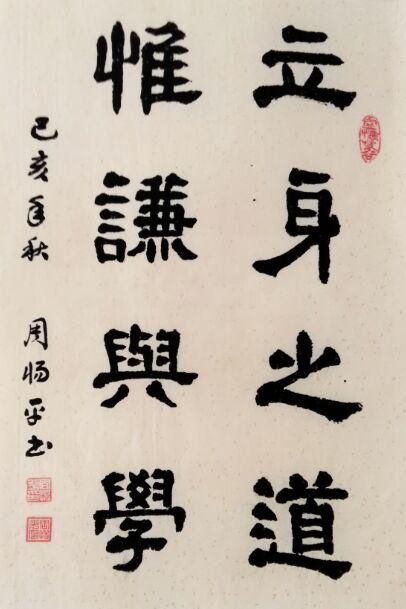 立身之道
惟謙與學
己亥年秋 周杨平书